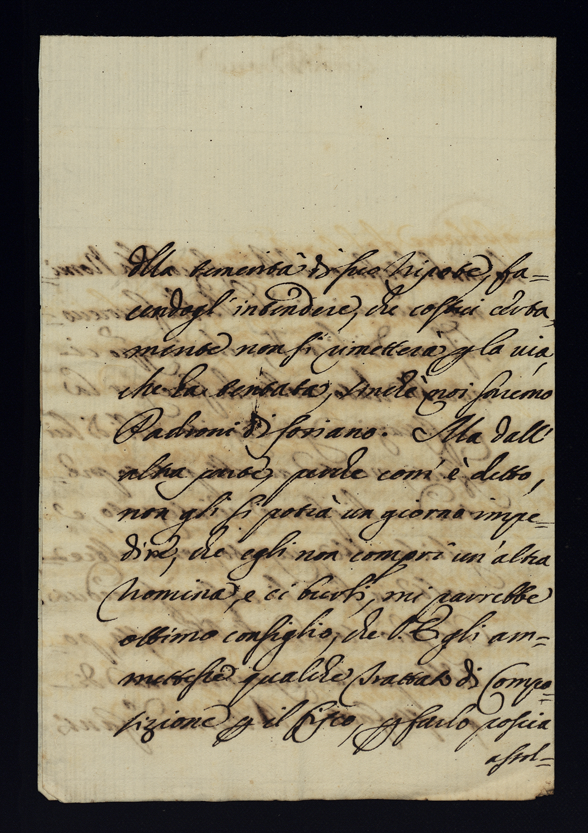 della temerità di suo Nipote, fa=
cendogl' intendere, che costui certa,
mente non si rimetterà p la via,
che ha tentata, sinchè noi saremo
Padroni di Soriano. Ma dall'
altra parte, perche com' è detto,
non gli si potrà un giorno impe=
dire, che egli non compri un' altra
Nomina, e ci burli, mi parrebbe
ottimo consiglio, che V.E. gli am=
mettesse qualche trattato di Compo=
sizione p il Fisco, p farlo poscia
assol=